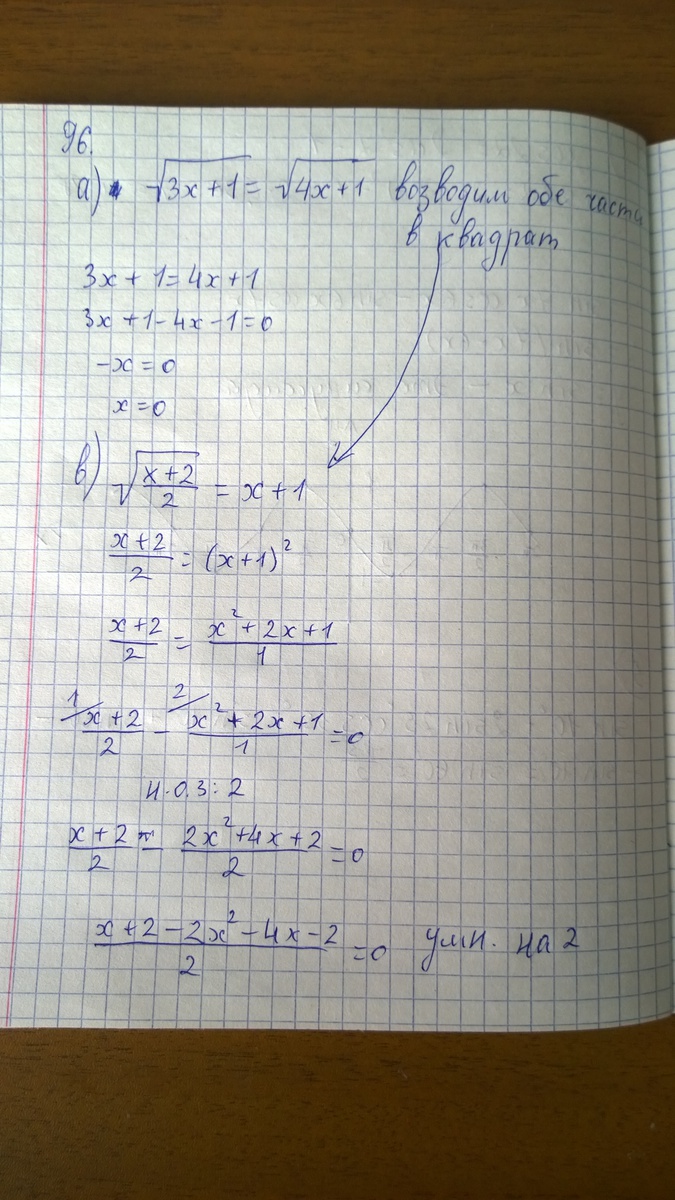 96.
а) √3x+1 = √4x+1 возводим обе части
в квадрат
3x + 1 = 4x + 1
3x + 1 - 4x - 1 = 0
-x = 0
x = 0
в) √(x+2)/2 = x + 1
(x+2)/2 = (x+1)²
(x+2)/2 = (x² + 2x + 1)/1
1/ (x+2)/2 - 2/ (x² + 2x + 1)/1 = 0
н.о.з: 2
(x+2)/2 - (2x² + 4x + 2)/2 = 0
(x + 2 - 2x² - 4x - 2)/2 = 0 умн. на 2